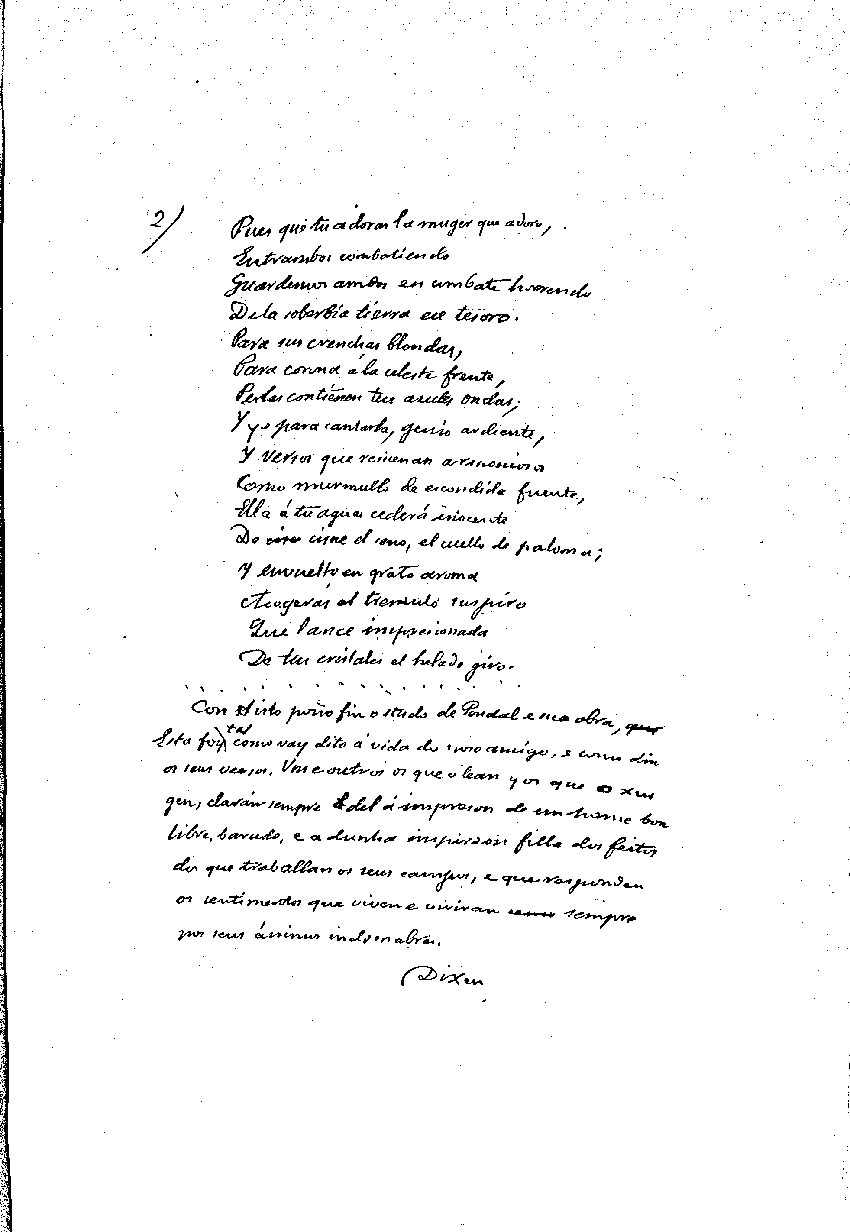 2/ Pues que tu adoras la muger que adoro,
Entrambos combatiendo
Guardemos ambos en combate horrendo
De la soberbia tierra ese tesoro.
Para sus crenchas blondas,
Para corona á la celeste frente,
Perlas contienen tus azules ondas;
Y yo para cantarla, genio ardiente,
Y versos que resuenan armoniosos
Como murmullo de escondida fuente,
Ella á tu aguas cederá inocente
De cisne el seno, el cuello de paloma;
Y envuelto en grato aroma
Acogerás el tremulo suspiro
Que lance impresionada
De tus cristales el helado giro.
Con isto poño fin o studo de Pondal e sua obra,
Esta foy tal como vay dito á vida do noso amigo, e como din
os seus versos. Uns e outros os que o lean y os que o xus
gen, darán sempre del á impreson de un home bon
libre, barudo, e a dunha inspirzón filla dos feitos
dos que traballan os seus campos, e que responden
os sentimentos que viven e vivirán sempre
nos seus ánimos indomabres.
Dixen